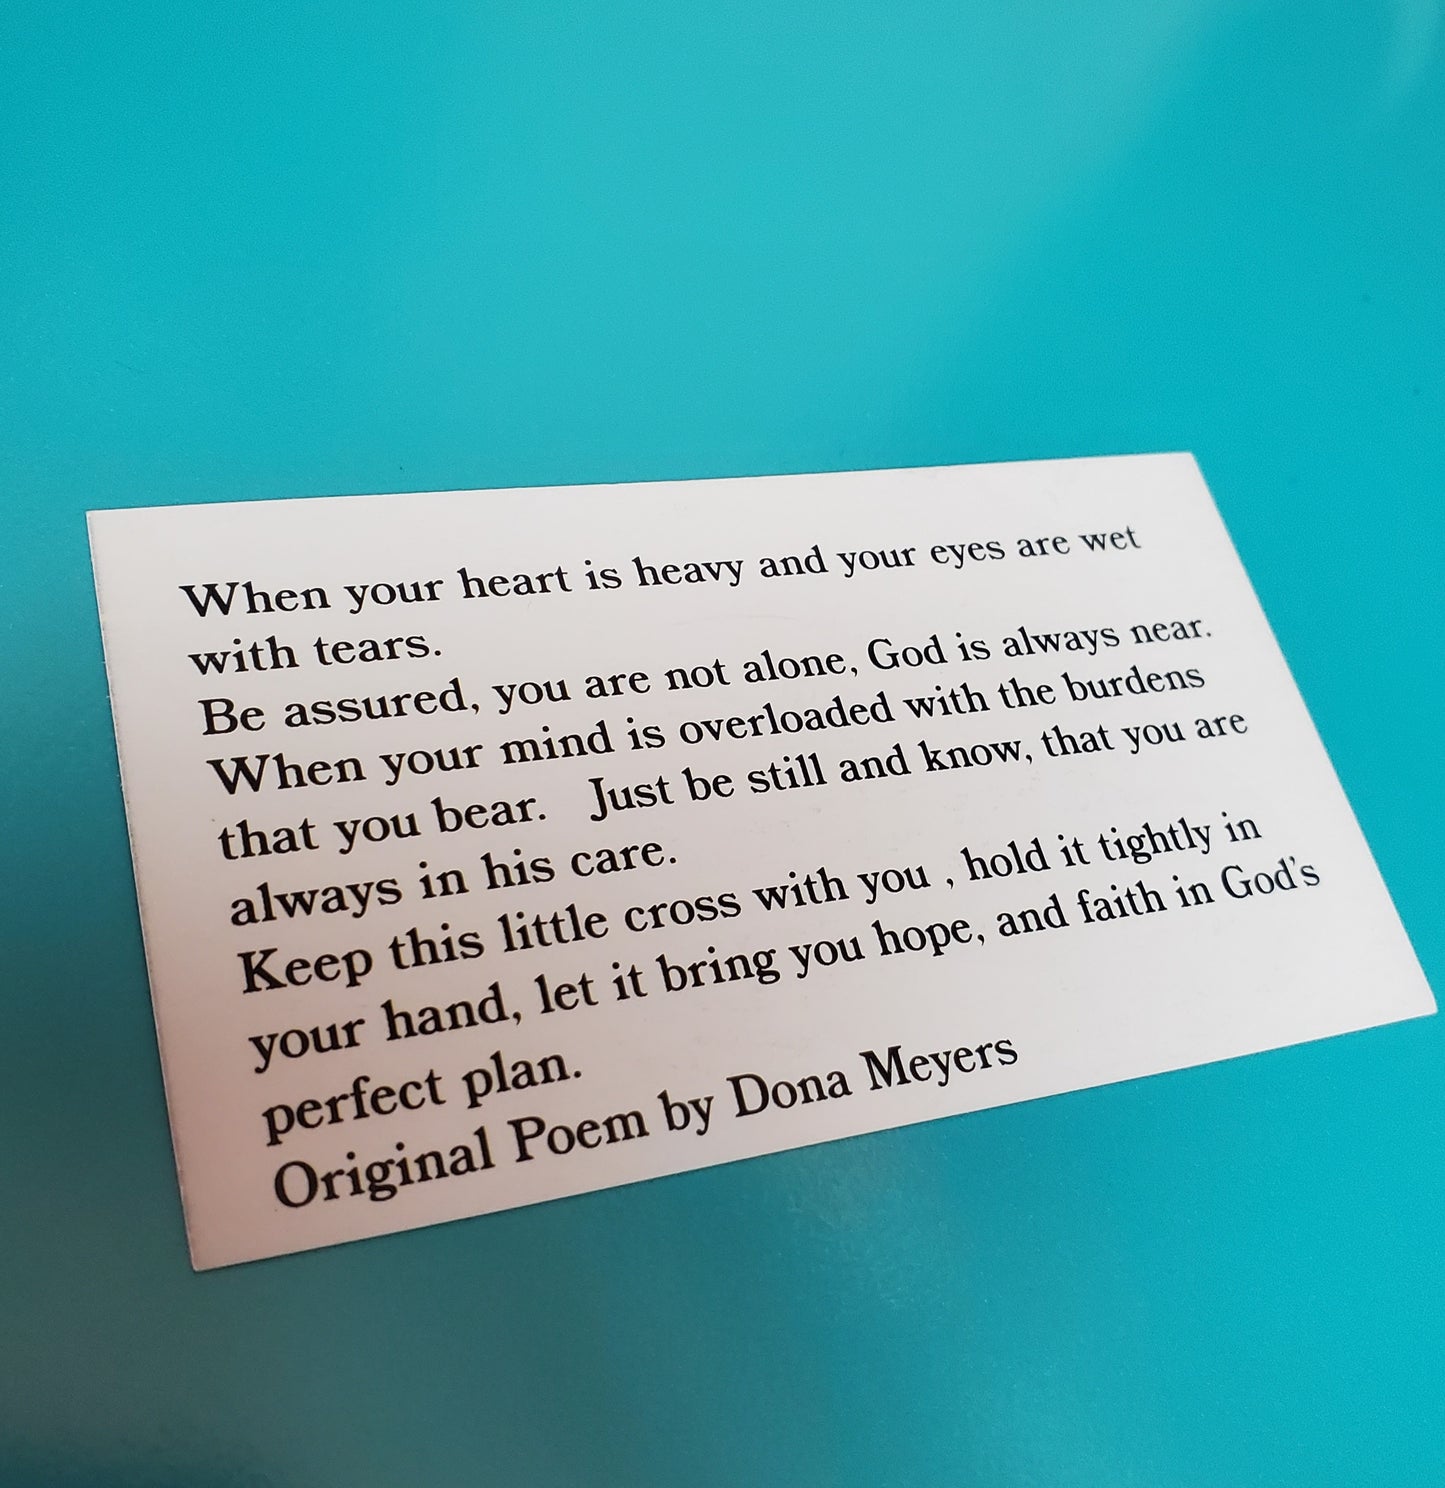 When your heart is heavy and your eyes are wet
with tears.
Be assured, you are not alone, God is always near.
When your mind is overloaded with the burdens
that you bear.   Just be still and know, that you are
always in his care.
Keep this little cross with you , hold it tightly in
your hand, let it bring you hope, and faith in God's
perfect plan.
Original Poem by Dona Meyers